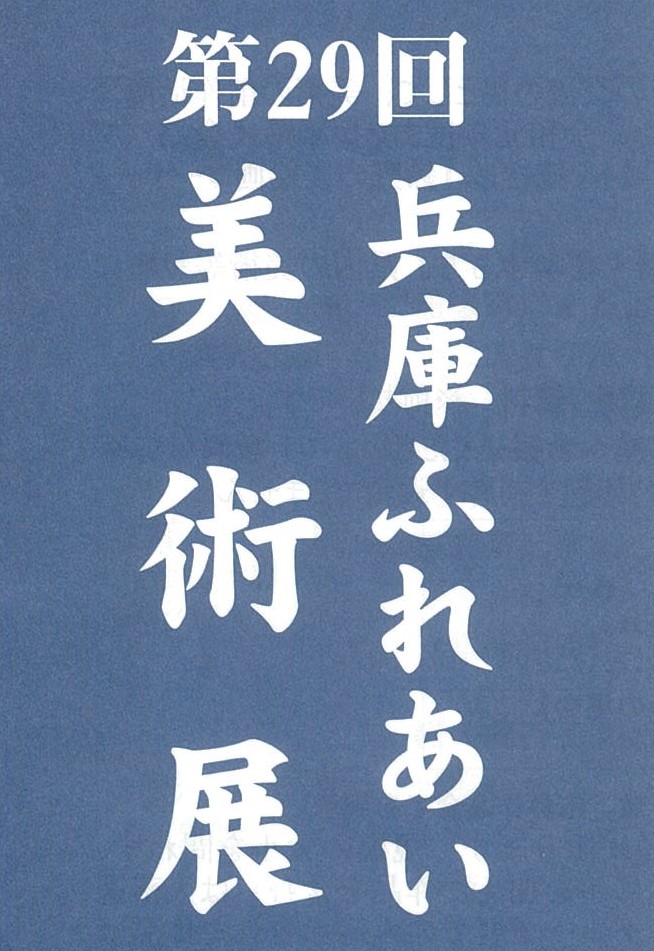 第29回
兵庫ふれあい
美術展